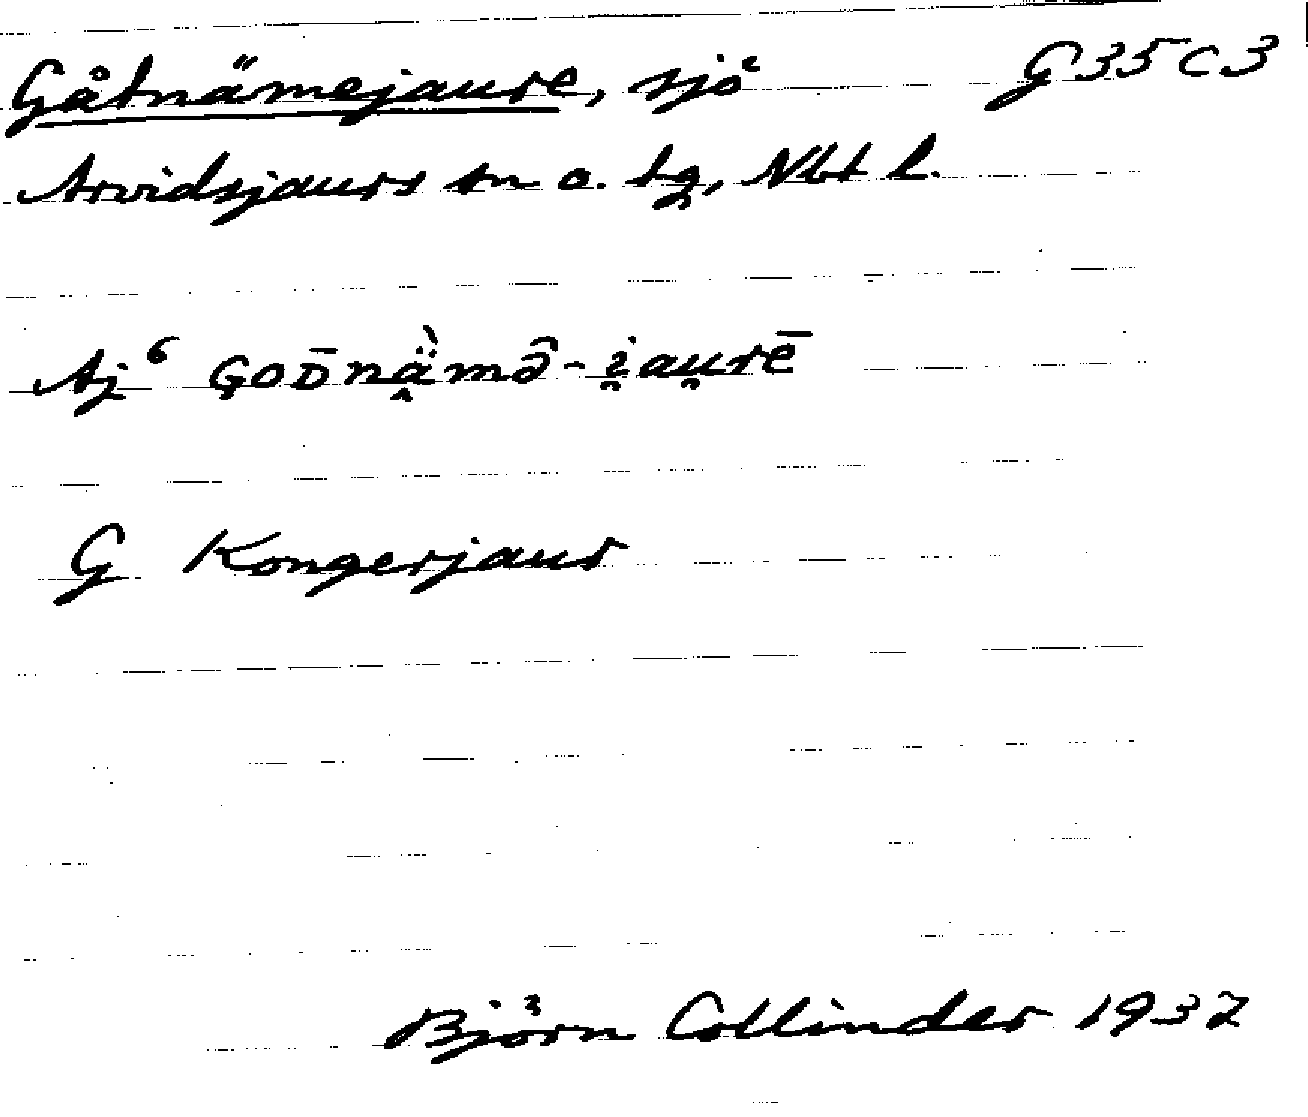 Gåtnämejaure, sjö G35C3
Arvidsjaurs sn o. tg, Nbt l.
Aj⁶ G̣OD̄nä̭̀mə̂-i̯au̯rē
G Kongerjaur
Björn Collinder 1937